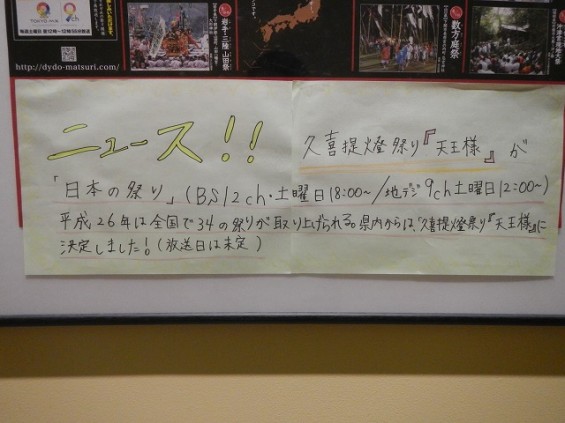 TOKYO MX
9ch
http://dydo-matsuri.com/
岩手・三陸 山田祭
数方庭祭
ニュース!!
久喜提燈祭り『天王様』が
「日本の祭り」(BS12ch・土曜日18:00~/地デジ9ch土曜日12:00~)
平成26年は全国で34の祭りが取り上げられる。県内からは、久喜提燈祭り『天王様』に
決定しました!(放送日は未定)